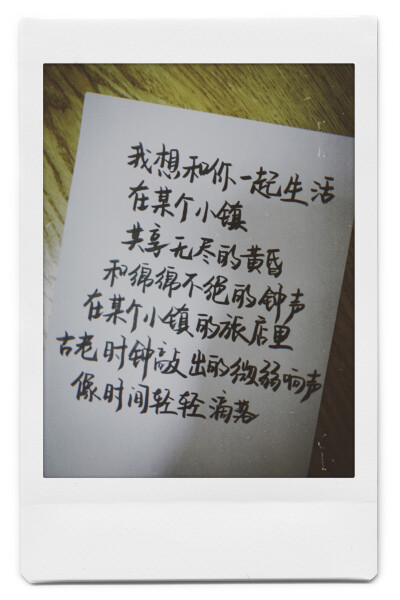 我想和你一起生活
在某个小镇
共享无尽的黄昏
和绵绵不绝的钟声
在某个小镇的旅店里
古老时钟敲出的微弱响声
像时间轻轻滴落